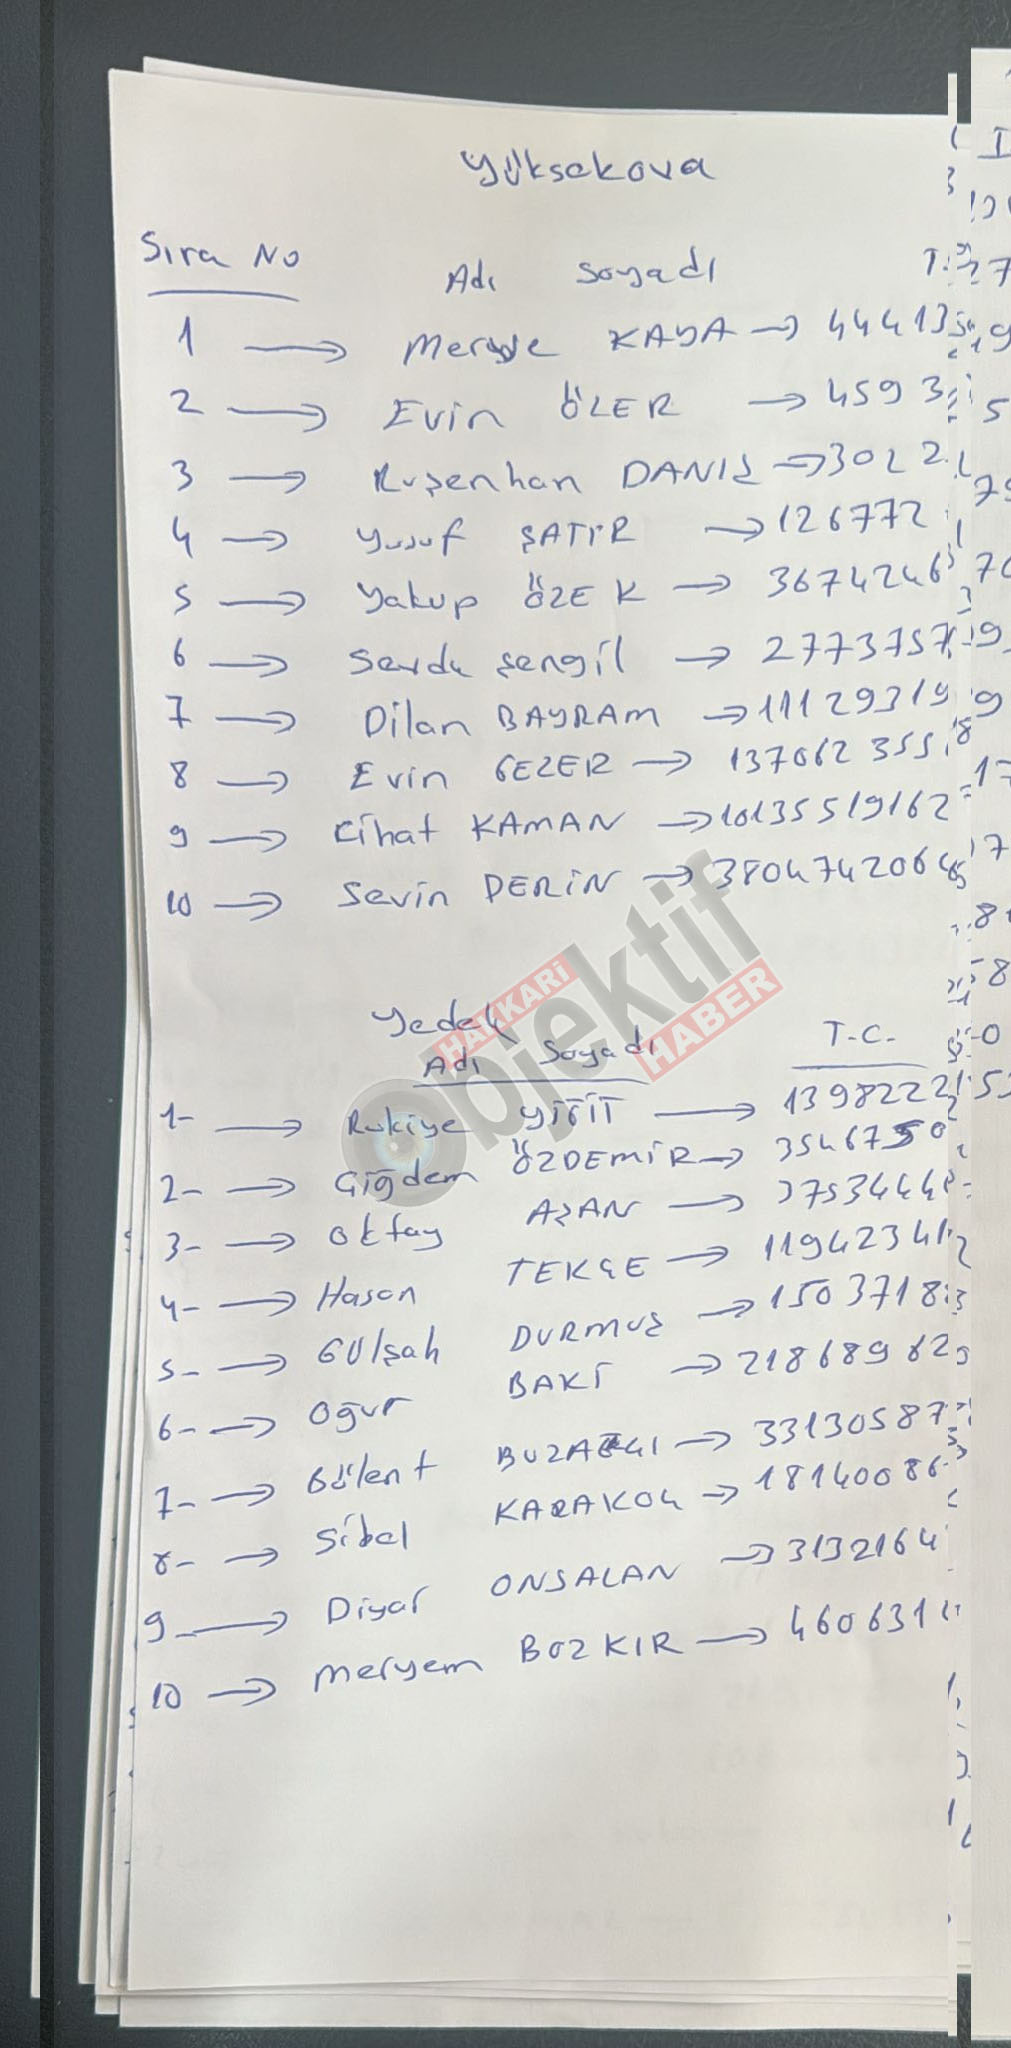 Yüksekova
Sıra No Adı Soyadı T.
1 → Merve KAYA → 44413
2 → Evin ÖZER → 4593
3 → Ruşenhan DANIŞ → 3022
4 → Yusuf ŞATIR → 126772
5 → Yakup ÖZEK → 3674246
6 → Sevda şengil → 2773757
7 → Dilan BAYRAM → 11129319
8 → Evin GEZER → 137062355
9 → Cihat KAMAN → 10135519162
10 → Sevin DERİN → 3804742064
Yedek
Adı Soyadı T.C.
1- → Rukiye YİĞİT → 1398222
2- → Çiğdem ÖZDEMİR → 3546750
3- → Oktay AŞAN → 3753444
4- → Hasan TEKÇE → 11942341
5- → Gülşah DURMUŞ → 1503718
6- → Oğur BAKİ → 21868962
7- → Bülent → 33130587
8- → Sibel KARAKOÇ → 18140086
9 → Diyar ONSALAN → 3132164
10 → Meryem BOZKIR → 460631
HAKKARİ
Objektif
HABER